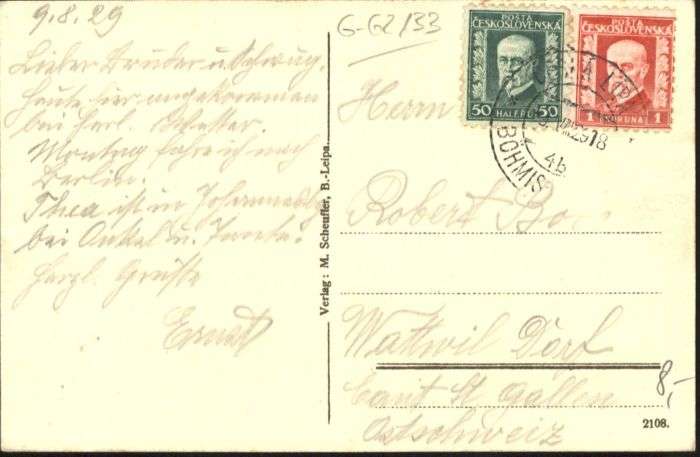 9.8.29
Lieber Bruder u. Schwäg.
Heute hier angekommen
bei herl. Wetter.
Montag fahre ich nach
Berlin.
Thea ist in
bei Onkel u. Tante.
Herzl. Grüsse
Ernst
Verlag: M. Scheuffer, B.-Leipa.
G-GZ/33
POSTA
ČESKOSLOVENSKÁ
50 HALÉŘŮ 50
POSTA
ČESKOSLOVENSKÁ
1 KORUNA 1
LÍPA
29 18
4b
BÖHMIS
Herrn
Robert
Wattwil Dorf
Cant St Gallen
Ostschweiz
8,-
2108.